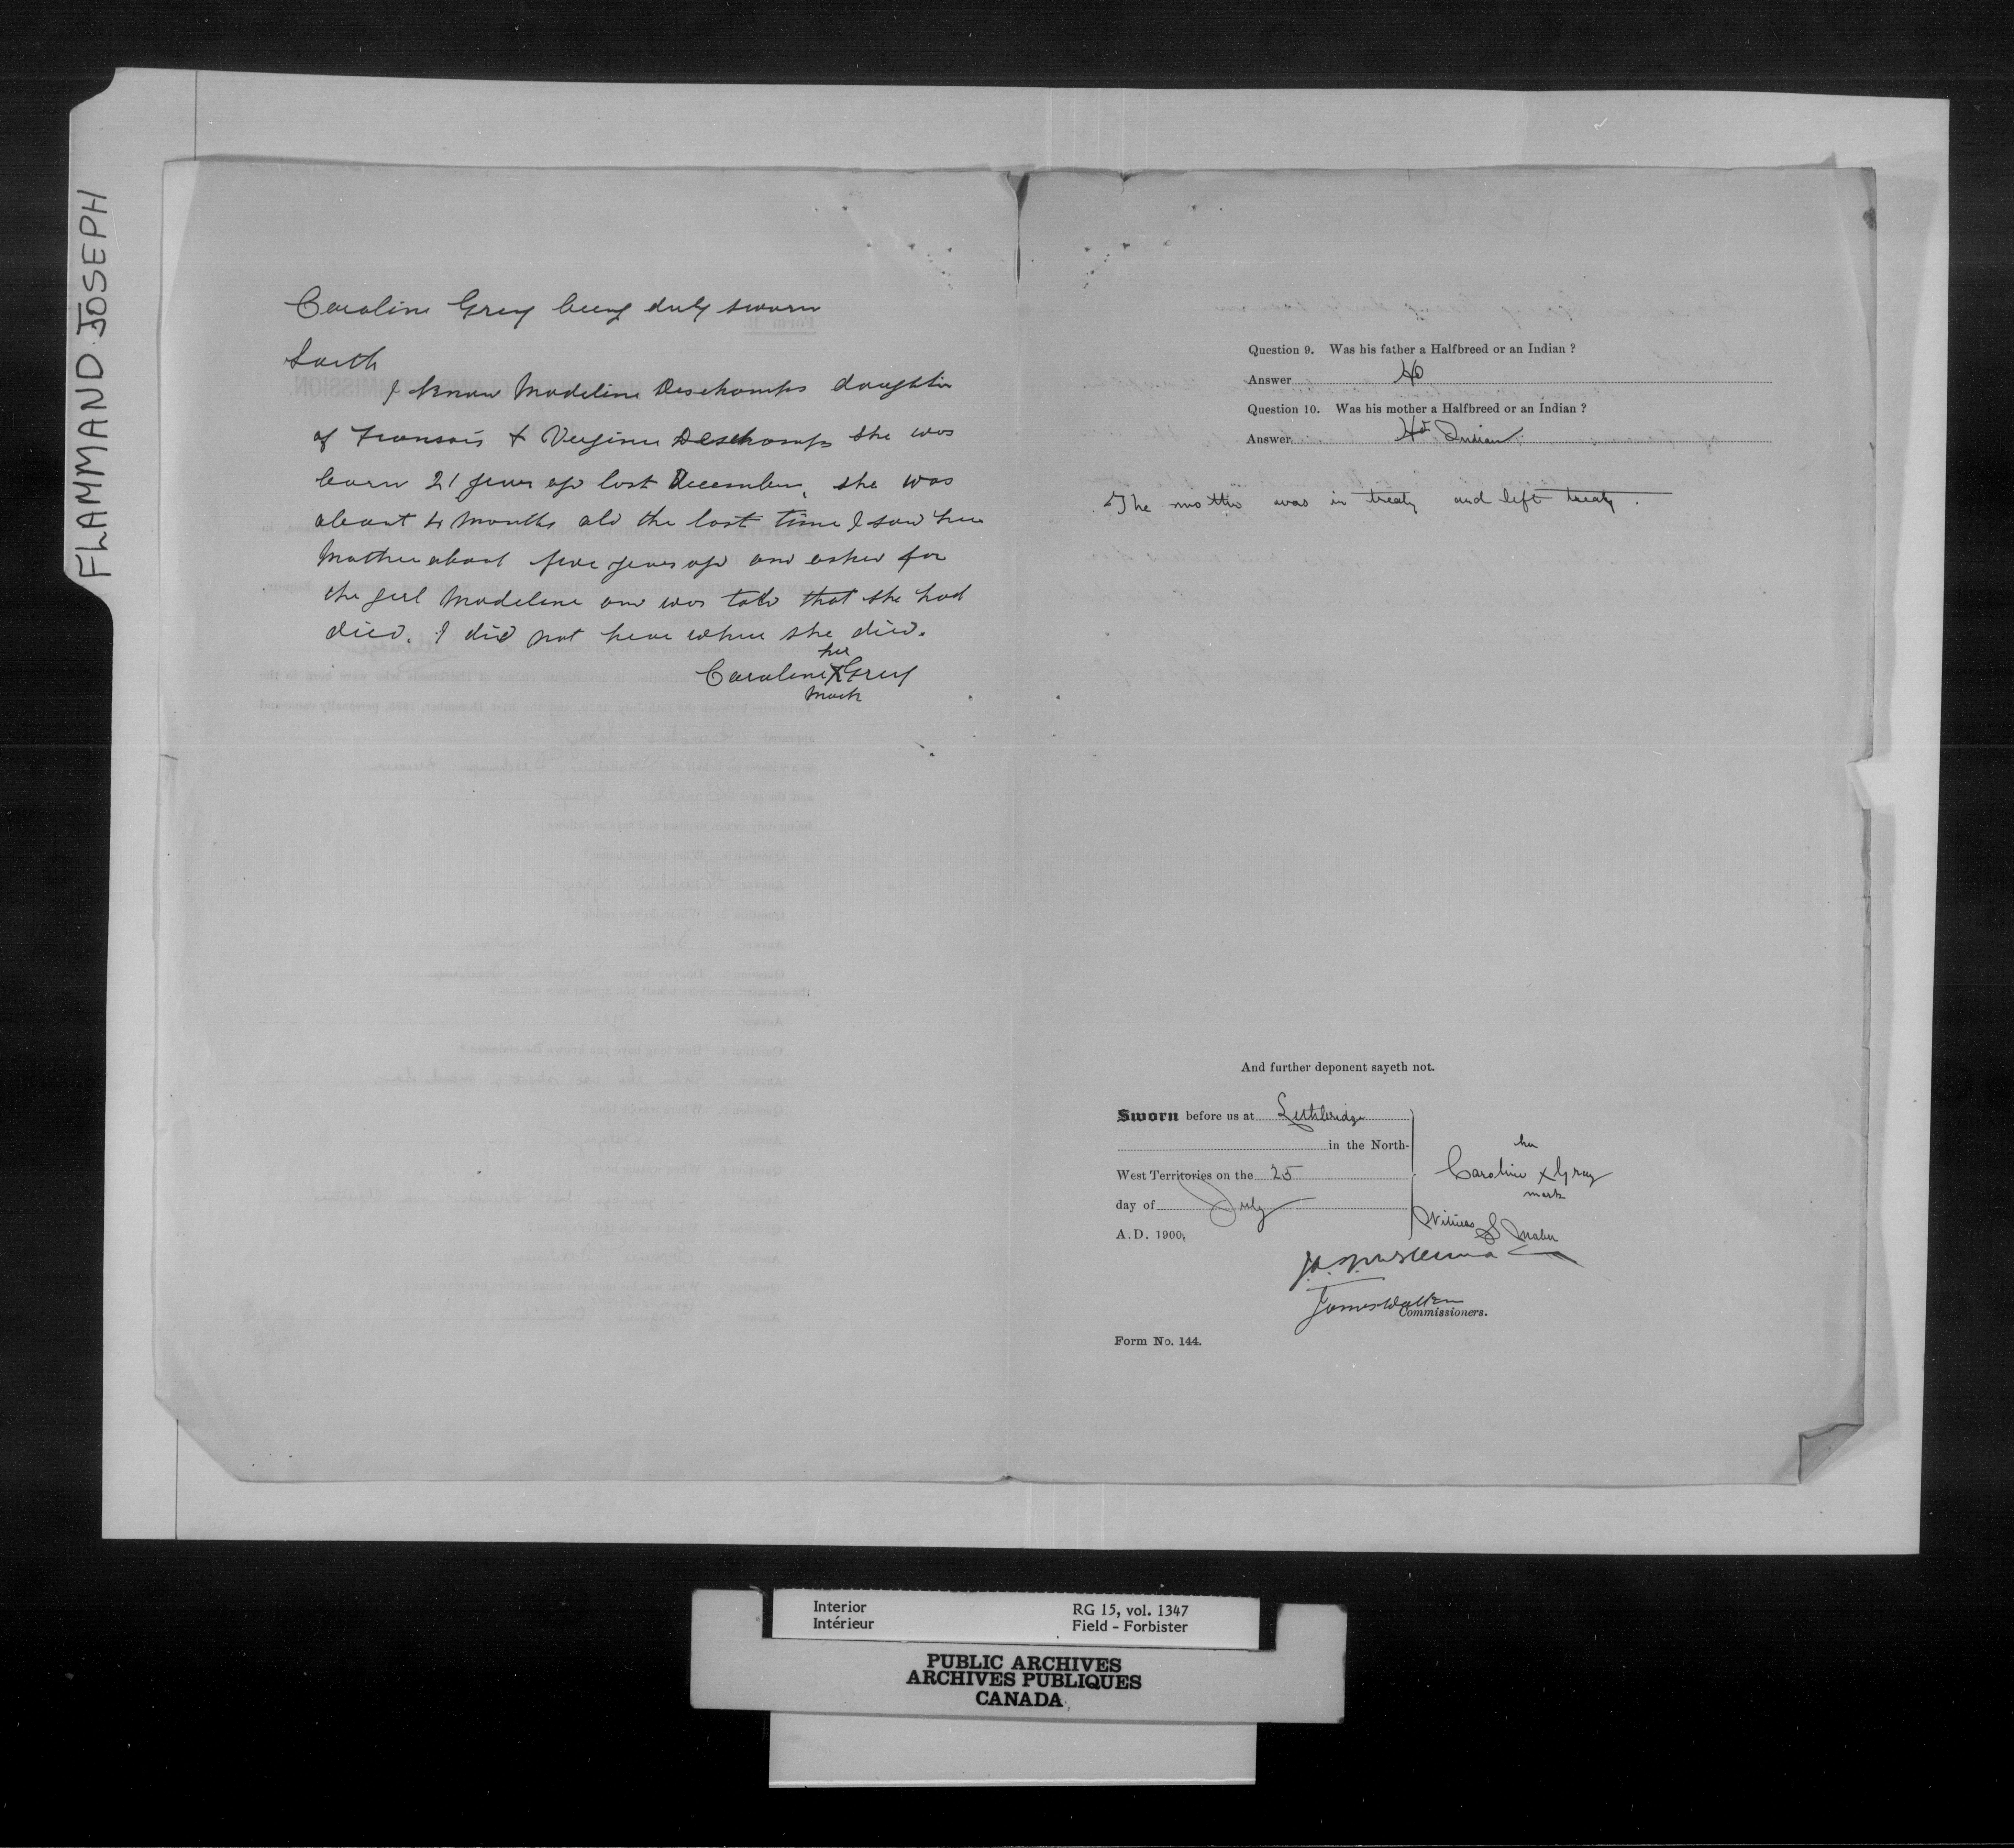 FLAMMAND JOSEPH
Caroline Grey being duly sworn
Saith
I know Madeline Deschamps daughter
of Fransois + Virginie Deschamps she was
born 21 years ago last December, she was
about 4 months old the last time I saw her
Mother about five years ago and asked for
the girl Madeline and was told that she had
died. I did not hear when she died.
her
Caroline X Grey
mark
Question 9. Was his father a Halfbreed or an Indian ?
Answer
Question 10. Was his mother a Halfbreed or an Indian ?
Answer Indian
The mother was in treaty and left treaty.
And further deponent sayeth not.
Sworn before us at Lethbridge
in the North-
West Territories on the 25
day of July
A.D. 1900.
her
Caroline x Gray
mark
Witness
James Walker
Commissioners.
Form No. 144.
Interior
Intérieur
RG 15, vol. 1347
Field - Forbister
PUBLIC ARCHIVES
ARCHIVES PUBLIQUES
CANADA